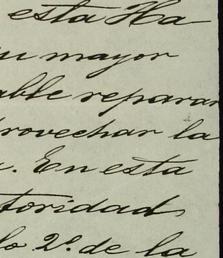 esta Ha
su mayor
able reparar
provechar la
a. En esta
toridad
lo 2º. de la